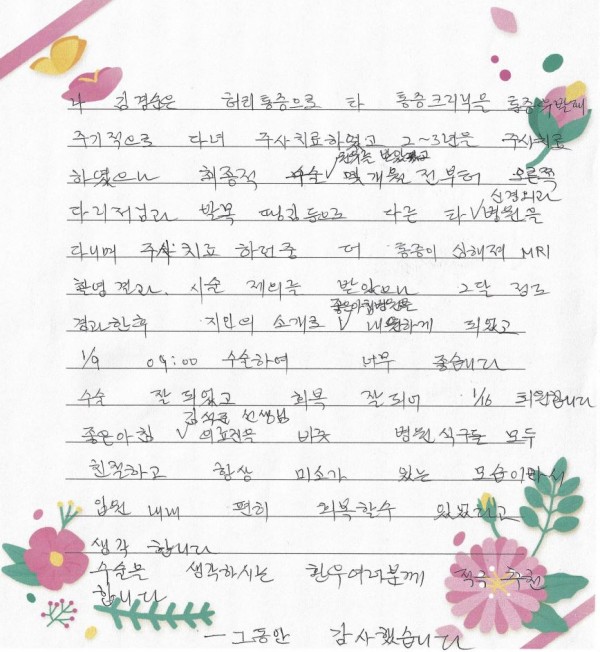 나 김경순은 허리통증으로 타 통증크리닉을 통증유발때
주기적으로 다녀 주사치료하였고 2~3년을 주사치료
하였으나 최종적 수술 권유를 받았었고 몇개월 전부터 오른쪽
다리저림과 발목 땡김등으로 다른 타 신경외과 병원을
다니며 주사치료 하던중 더 통증이 심해져 MRI
촬영결과, 시술 제의를 받았으나 2달 정도
경과한후 지인의 소개로 좋은아침병원을 내원하게 되었고
1/9 09:00 수술하여 너무 좋습니다
수술 잘 되었고 회복 잘 되어 1/16 퇴원합니다
좋은아침 김석표 선생님 의료진을 비롯 병원식구들 모두
친절하고 항상 미소가 있는 모습이라서
입원 내내 편히 회복할수 있었다고
생각 합니다
수술을 생각하시는 환우여러분께 적극 추천
합니다
- 그동안 감사했습니다